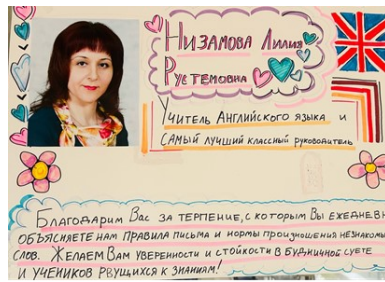 Низамова Лилия
Рустемовна
Учитель Английского языка и
самый лучший классный руководитель
Благодарим Вас за терпение, с которым Вы ежеднев
объясняете нам правила письма и нормы произношения незнакомы
слов. Желаем Вам уверенности и стойкости в будничной суете
и учеников рвущихся к знаниям!